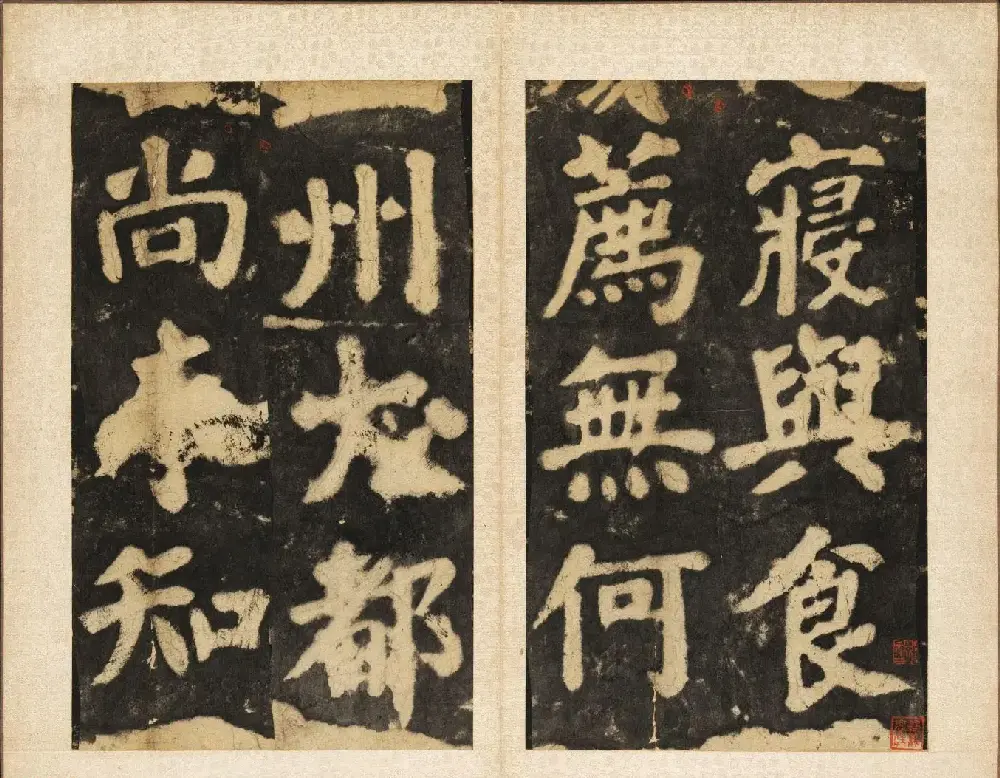 寢與食
薦無何
州都
尚知